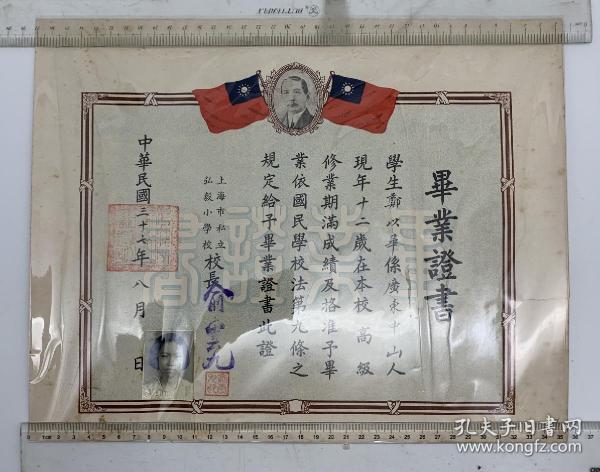 畢業證書
學生鄭以華係廣東中山人
現年十二歲在本校高級
修業期滿成績及格准予畢
業依國民學校法第九條之
規定給予畢業證書此證
上海市私立
弘毅小學校
校長
中華民國三十七年八月 日
孔夫子旧书网